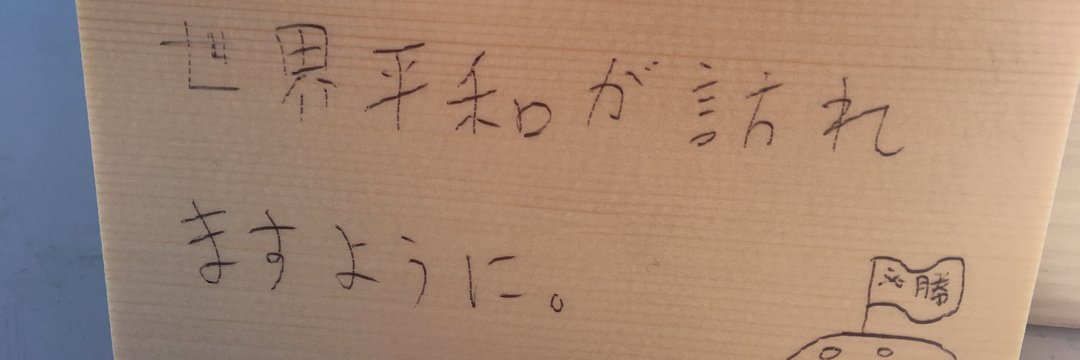 世界平和が訪れ
ますように。
必勝